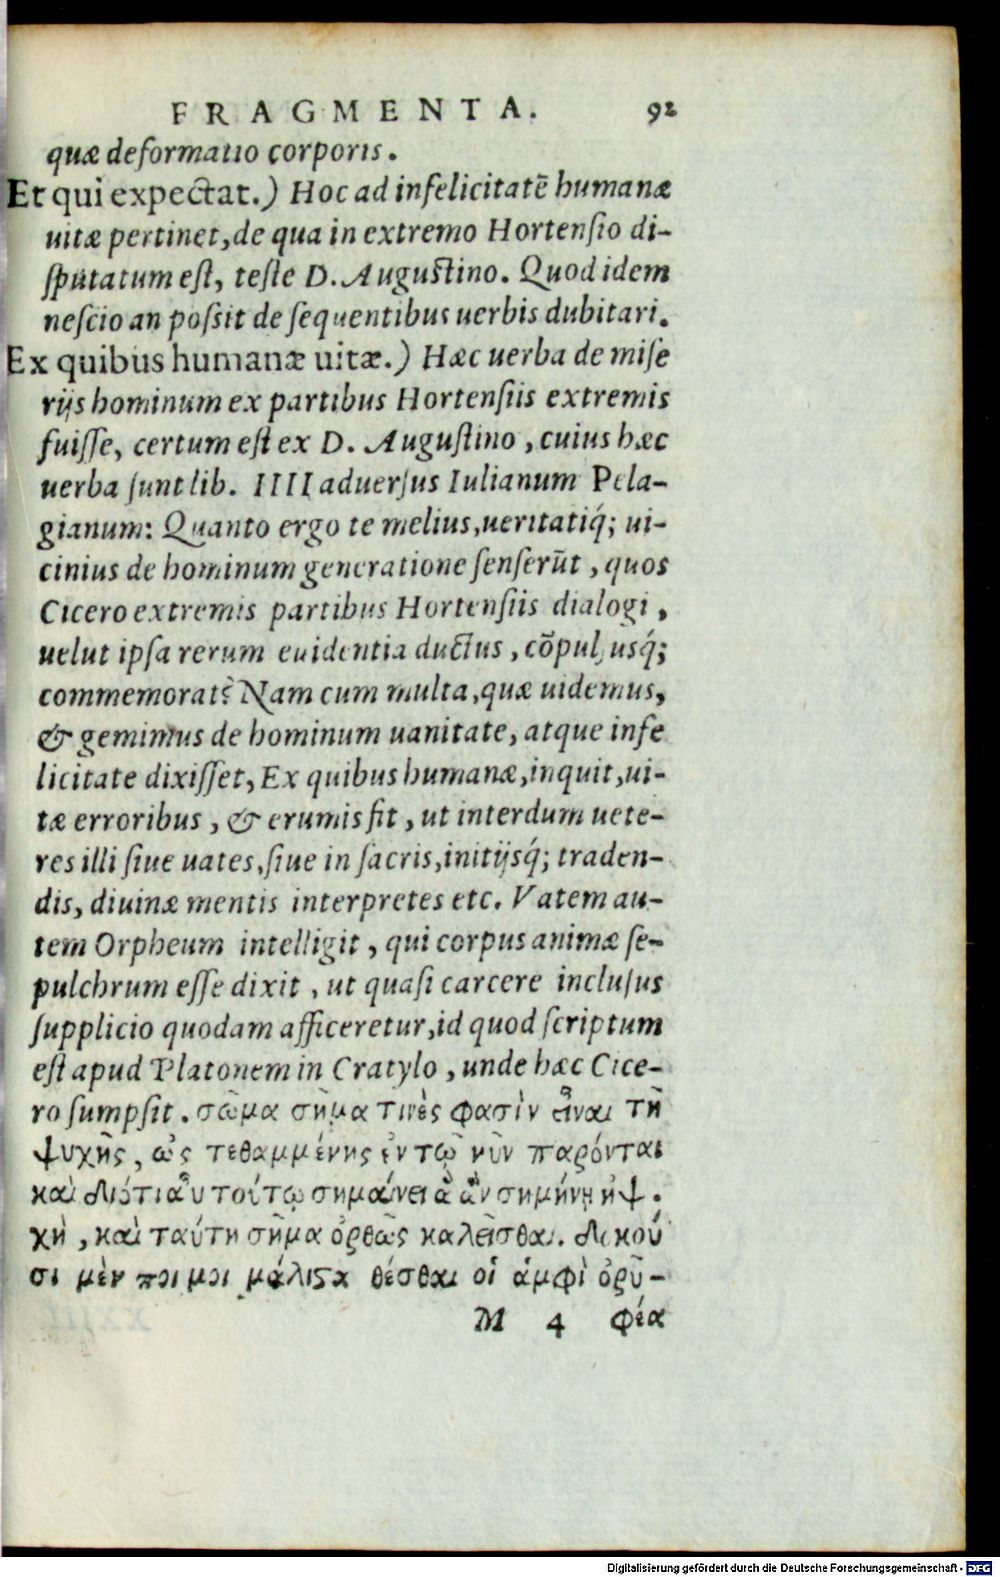 FRAGMENTA. 92
quæ deformatio corporis.
Et qui expectat.) Hoc ad infelicitatē humanæ
uitæ pertinet, de qua in extremo Hortensio di-
sputatum est, teste D. Augustino. Quod idem
nescio an possit de sequentibus uerbis dubitari.
Ex quibus humanæ uitæ.) Hæc uerba de mise
rijs hominum ex partibus Hortensiis extremis
fuisse, certum est ex D. Augustino, cuius hæc
uerba sunt lib. IIII aduersus Iulianum Pela-
gianum: Quanto ergo te melius, ueritatiq́; ui-
cinius de hominum generatione senserūt, quos
Cicero extremis partibus Hortensiis dialogi,
uelut ipsa rerum euidentia ductus, cōpulsusq́;
commemorat? Nam cum multa, quæ uidemus,
& gemimus de hominum uanitate, atque infe
licitate dixisset, Ex quibus humanæ, inquit, ui-
tæ erroribus, & erumis fit, ut interdum uete-
res illi siue uates, siue in sacris, initijsq́; traden-
dis, diuinæ mentis interpretes etc. Vatem au-
tem Orpheum intelligit, qui corpus animæ se-
pulchrum esse dixit, ut quasi carcere inclusus
supplicio quodam afficeretur, id quod scriptum
est apud Platonem in Cratylo, unde hæc Cice-
ro sumpsit. σῶμα σῆμα τινὲς φασὶν εἶναι τῆ
ψυχῆς, ὡς τεθαμμένης ἐν τῷ νῦν παρόνται
καὶ διότι αὖ τούτῳ σημαίνει ἃ ἂν σημήνῃ ἡ ψ.
χὴ, καὶ ταύτη σῆμα ὀρθῶς καλεῖσθαι. δοκοῦ
σι μὲν ποι μοι μάλιϛα θέσθαι οἱ ἀμφὶ ὀρῦ-
M 4 φέα
Digitalisierung gefördert durch die Deutsche Forschungsgemeinschaft - DFG